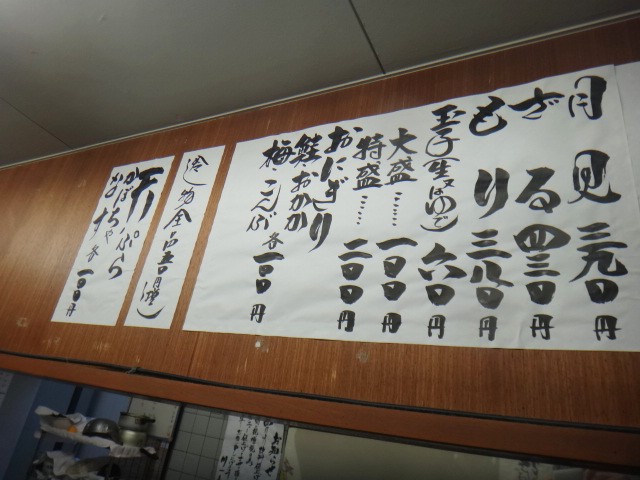 月見 三九〇円
ざる 四三〇円
もり 三八〇円
玉子(生又はゆで) 六〇円
大盛…… 一〇〇円
特盛…… 二〇〇円
おにぎり
鮭、おかか
梅、こんぶ 各一〇〇円
物全品
天ぷら
かぼちゃ
なす 各一〇〇円